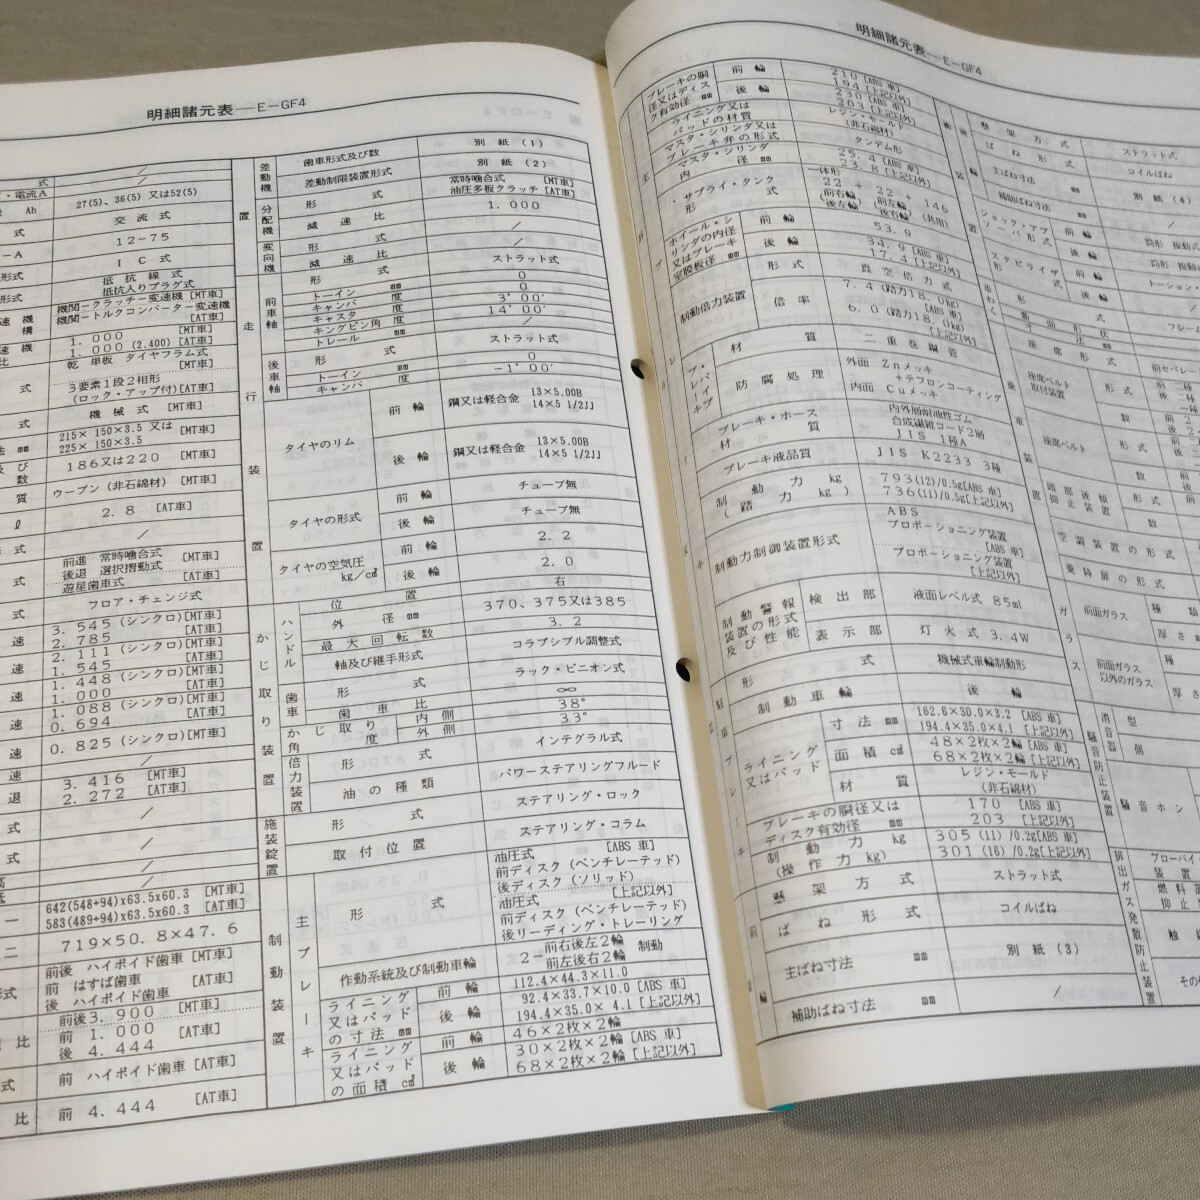 明細諸元表―E－GF4
式 ／
・電流A ／
Ah 27(5)、36(5) 又は52(5)
式 交流式
－A 12－75
IC式
形式 抵抗線式
形式 抵抗入りプラグ式
速機構 機関－クラッチ－変速機 [MT車]
機関－トルクコンバーター変速機 [AT車]
速機比 1.000 [MT車]
1.000 (2.400) [AT車]
式 乾単板 ダイヤフラム式 [MT車]
3要素1段2相形
(ロック・アップ付) [AT車]
式 機械式 [MT車]
法 mm 215×150×3.5 又は
225×150×3.5 [MT車]
及び数 186又は220 [MT車]
質 ウーブン (非石綿材) [MT車]
ℓ 2.8 [AT車]
形式 ／
式 前進 常時噛合式 [MT車]
後退 選択摺動式
遊星歯車式 [AT車]
式 フロア・チェンジ式
速 3.545 (シンクロ) [MT車]
2.785 [AT車]
速 2.111 (シンクロ) [MT車]
1.545 [AT車]
速 1.448 (シンクロ) [MT車]
1.000 [AT車]
速 1.088 (シンクロ) [MT車]
0.694 [AT車]
速 0.825 (シンクロ) [MT車]
速 ／
退 3.416 [MT車]
2.272 [AT車]
式 ／
式 ／
高 ／
一 642(548+94)x63.5x60.3 [MT車]
583(489+94)x63.5x60.3 [AT車]
二 719×50.8×47.6
形式 前後 ハイポイド歯車 [MT車]
前 はすば歯車 [AT車]
後 ハイポイド歯車
比 前後3.900 [MT車]
前 1.000 [AT車]
後 4.444
式 前 ハイポイド歯車 [AT車]
比 前 4.444 [AT車]
置
走行装置
差動機 歯車形式及び数 別紙(1)
差動制限装置形式 別紙(2)
分配機 形式 常時噛合式 [MT車]
油圧多板クラッチ [AT車]
減速比 1.000
変向機 形式 ／
減速比 ／
前車軸 形式 ストラット式
トーイン mm 0
キャンバ 度 0
キャスタ 度 3°00′
キングピン角度 14°00′
トレール mm ／
後車軸 形式 ストラット式
トーイン mm 0
キャンバ 度 －1°00′
タイヤのリム 前輪 鋼又は軽合金 13×5.00B
14×5 1/2JJ
後輪 鋼又は軽合金 13×5.00B
14×5 1/2JJ
タイヤの形式 前輪 チューブ無
後輪 チューブ無
タイヤの空気圧 kg/c㎡ 前輪 2.2
後輪 2.0
かじ取り装置
ハンドル 位置 右
外径 mm 370、375又は385
最大回転数 3.2
軸及び継手形式 コラプシブル調整式
歯車 形式 ラック・ピニオン式
歯車比 ∞
かじ取り角度 内側 38°
外側 33°
倍力装置 形式 インテグラル式
油の種類 パワーステアリングフルード
施錠装置 形式 ステアリング・ロック
取付位置 ステアリング・コラム
制動装置
主ブレーキ
形式 油圧式 [ABS車]
前ディスク (ベンチレーテッド)
後ディスク (ソリッド)
油圧式 [上記以外]
前ディスク (ベンチレーテッド)
後リーディング・トレーリング
作動系統及び制動車輪 2－前右後左2輪 制動
前左後右2輪
ライニング又はパッドの寸法 mm 前輪 112.4×44.3×11.0
後輪 92.4×33.7×10.0 [ABS車]
194.4×35.0× 4.1 [上記以外]
ライニング又はパッドの面積 c㎡ 前輪 46×2枚×2輪
後輪 30×2枚×2輪 [ABS車]
68×2枚×2輪 [上記以外]
明細諸元表―E－GF4
ブレーキの胴径又はディスク有効径 mm 前輪 210 [ABS車]
194 [上記以外]
後輪 230 [ABS車]
203 [上記以外]
ライニング又はパッドの材質 レジン・モールド
(非石綿材)
マスタ・シリンダ又はブレーキ弁の形式 タンデム形
マスタ・シリンダ内径 mm 25.4 [ABS車]
23.8 [上記以外]
サプライ・タンク形式 一体形
22 ＋ 22 ＋ 146
(前右輪後左輪) (前左輪後右輪) (共用)
ホイール・シリンダの内径又はブレーキ室膜板径 mm 前輪 53.9
後輪 34.9 [ABS車]
17.4 [上記以外]
制動倍力装置 形式 真空倍力式
倍率 7.4 (踏力18.0kg) [ABS車]
6.0 (踏力18.0kg) [上記以外]
ブレーキパイプ 材質 二重巻鋼管
防腐処理 外面 Znメッキ
＋テフロンコーティング
内面 Cuメッキ
ブレーキ・ホース材質 内外層耐油性ゴム
合成繊維コード2層
JIS 1種A
ブレーキ液品質 JIS K2233 3種
制動力 kg (踏力 kg) 793(12)/0.5g[ABS車]
736(11)/0.5g[上記以外]
制動力制御装置形式 ABS
プロポーショニング装置 [ABS車]
プロポーショニング装置 [上記以外]
制動警報装置の形式及び性能 検出部 液面レベル式 85㎖
表示部 灯火式 3.4W
形式 機械式車輪制動形
制動車輪 後輪
ライニング又はパッド 寸法 mm 162.6×30.0×3.2 [ABS車]
194.4×35.0×4.1 [上記以外]
面積 c㎡ 48×2枚×2輪 [ABS車]
68×2枚×2輪 [上記以外]
材質 レジン・モールド
(非石綿材)
ブレーキの胴径又はディスク有効径 mm 170 [ABS車]
203 [上記以外]
制動力 kg (操作力 kg) 305(11)/0.2g[ABS車]
301(16)/0.2g[上記以外]
懸架方式 ストラット式
ばね形式 コイルばね
主ばね寸法 mm 別紙(3)
補助ばね寸法 mm ／
前輪
懸架方式 ストラット式
ばね形式 コイルばね
主ばね寸法 mm 別紙(4)
補助ばね寸法 mm ／
ショック・アブソーバ形式 前輪 筒形 複動式
後輪 筒形 複動
スタビライザ形式 前輪 トーション・
後輪
形式 フレー
断面形状
寸法 mm
座席形式 前セパレー
座席ベルト取付装置 形式 前 二種
後 二種
数 前 2
後 2
座席ベルト 形式 前
数 前
後
頭部後傾抑止装置 形式 前
数
空調装置の形式
乗降扉の形式
ガラス
前面ガラス 種類
厚さ
前面ガラス以外のガラス 種
厚さ
騒音防止装置 消音器 型
個
騒音ホン
排出ガス発散防止装置
ブローバイ 装置
燃料蒸 抑止
触
その他